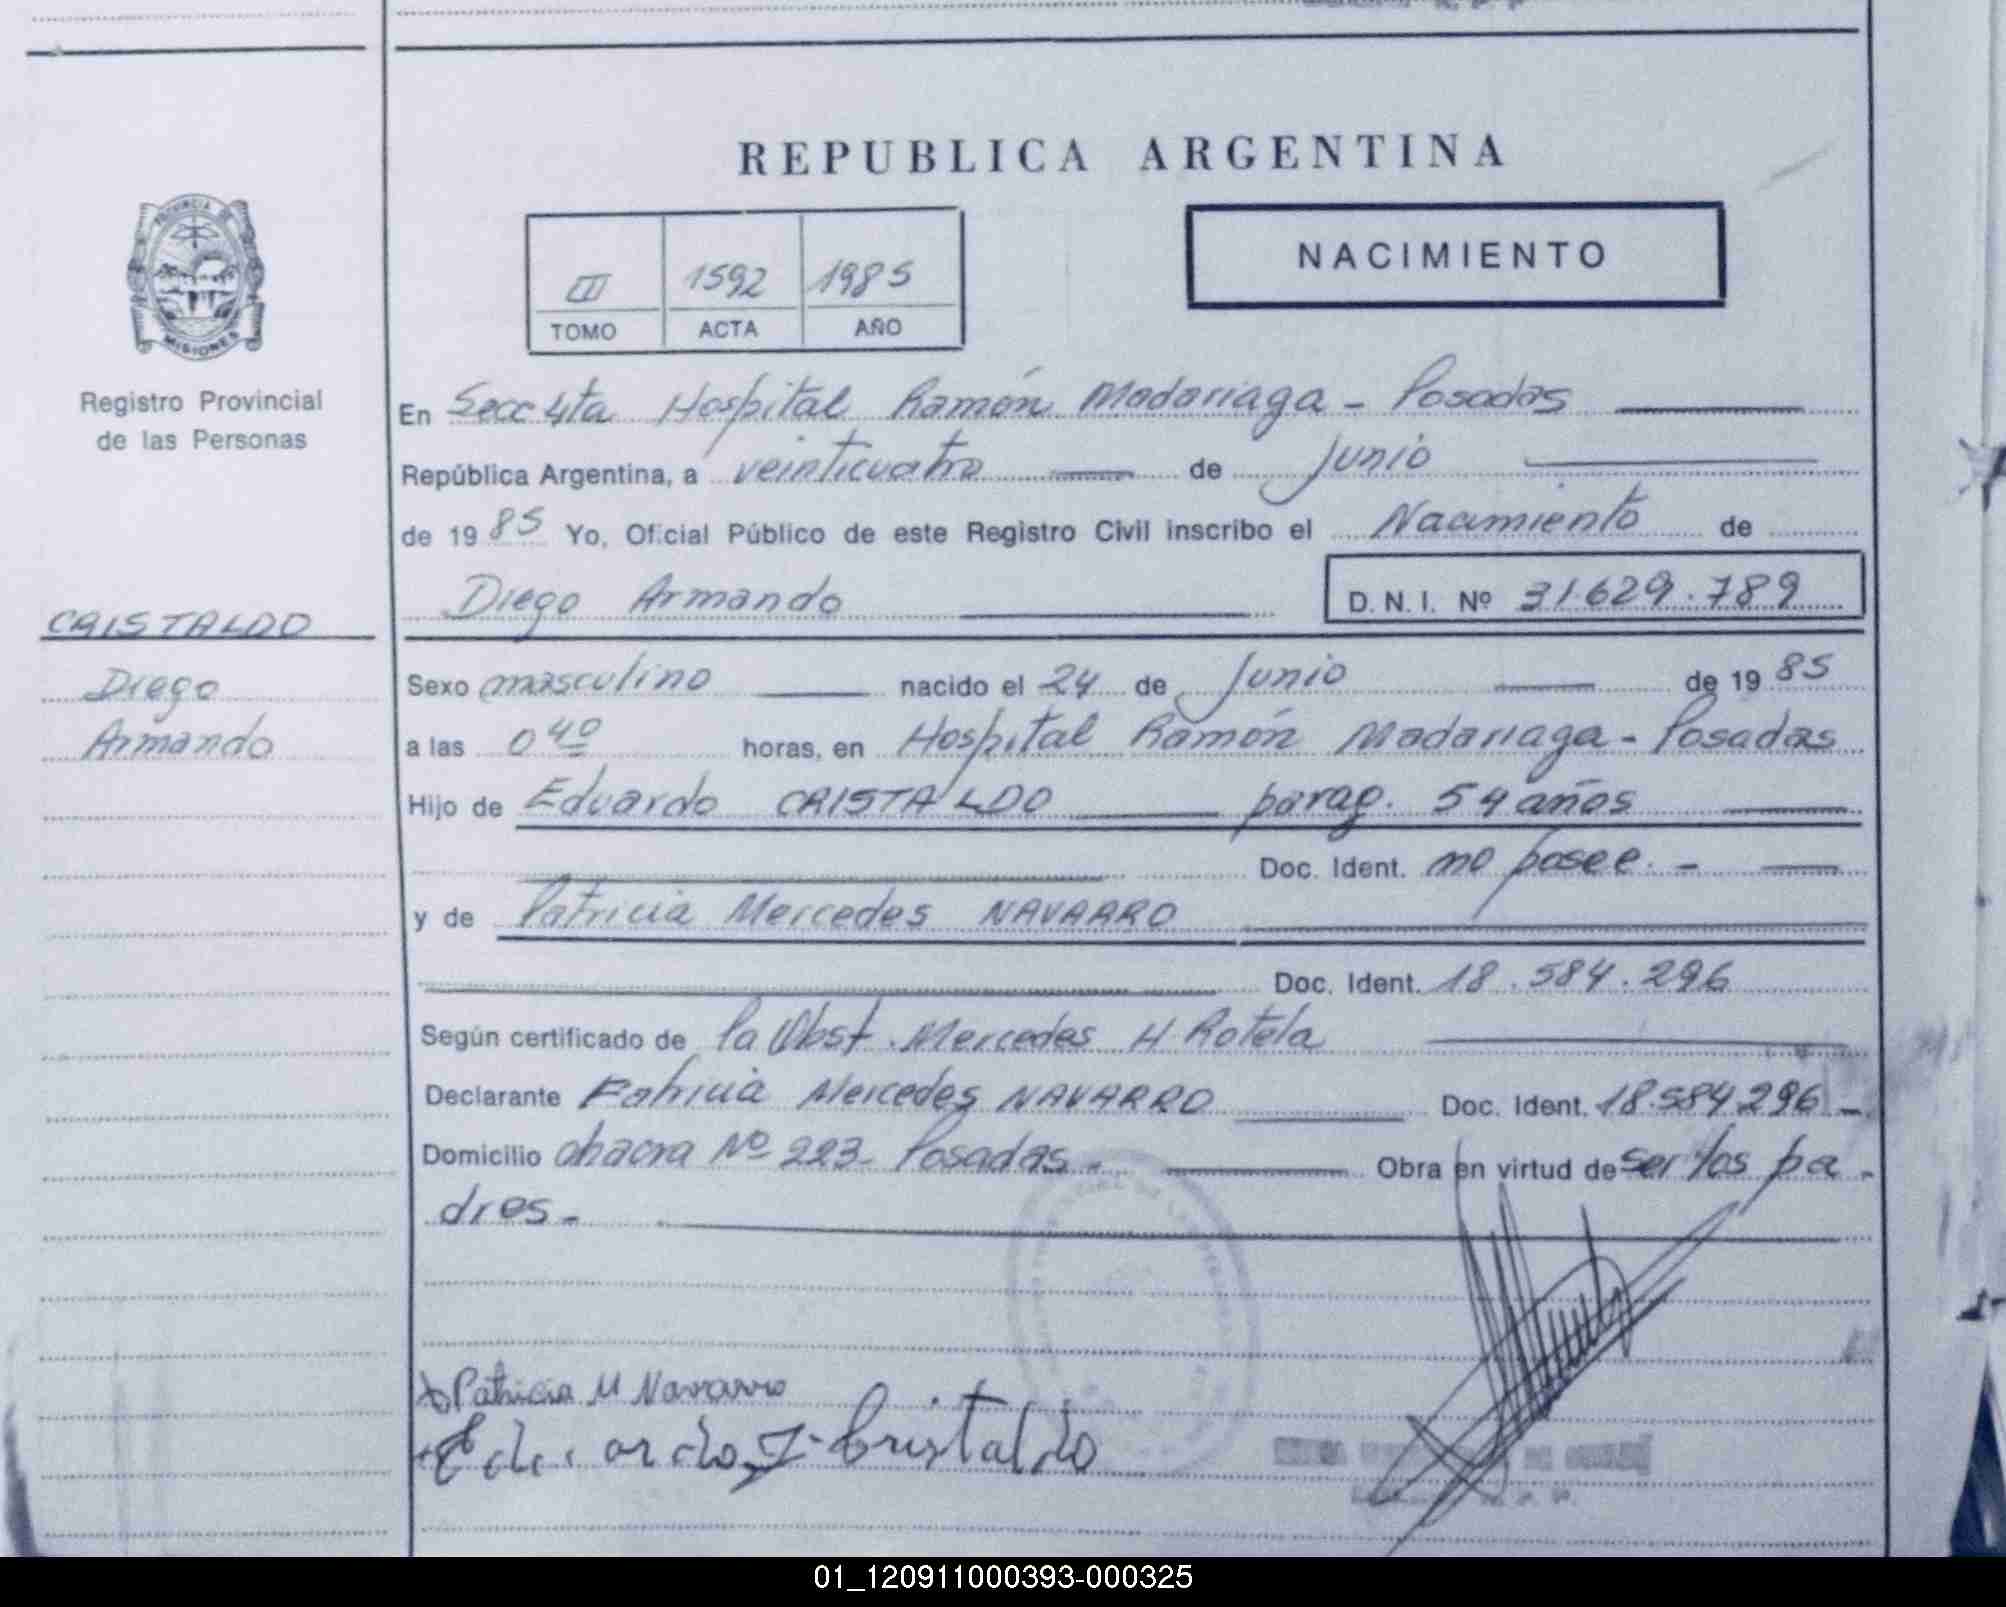 REPUBLICA ARGENTINA
PROVINCIA DE
MISIONES
Registro Provincial
de las Personas
III 1592 1985
TOMO ACTA AÑO
NACIMIENTO
En Secc 4ta Hospital Ramón Madariaga - Posadas
República Argentina, a veinticuatro de Junio
de 19 85 Yo, Oficial Público de este Registro Civil inscribo el Nacimiento de
Diego Armando D.N.I. Nº 31.629.789
CRISTALDO
Diego
Armando
Sexo masculino nacido el 24 de Junio de 19 85
a las 0 40 horas, en Hospital Ramón Madariaga - Posadas
Hijo de Eduardo CRISTALDO parag. 54 años
Doc. Ident. no posee. -
y de Patricia Mercedes NAVARRO
Doc. Ident. 18.584.296
Según certificado de la Obst. Mercedes H Rotela
Declarante Patricia Mercedes NAVARRO Doc. Ident. 18.584296 -
Domicilio chacra Nº 223 - Posadas - Obra en virtud de ser los pa -
dres -
Patricia M Navarro
Eduardo J. Cristaldo
01_120911000393-000325